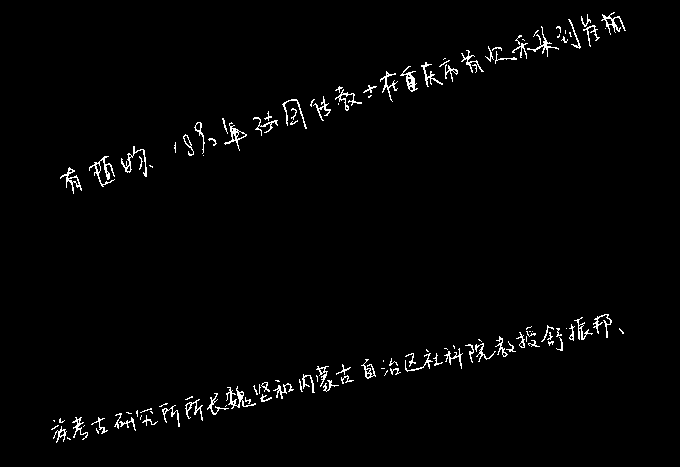 有植物、1892年法国传教士在重庆市首次采集到崖柏
族考古研究所所长魏坚和内蒙古自治区社科院教授舒振邦、